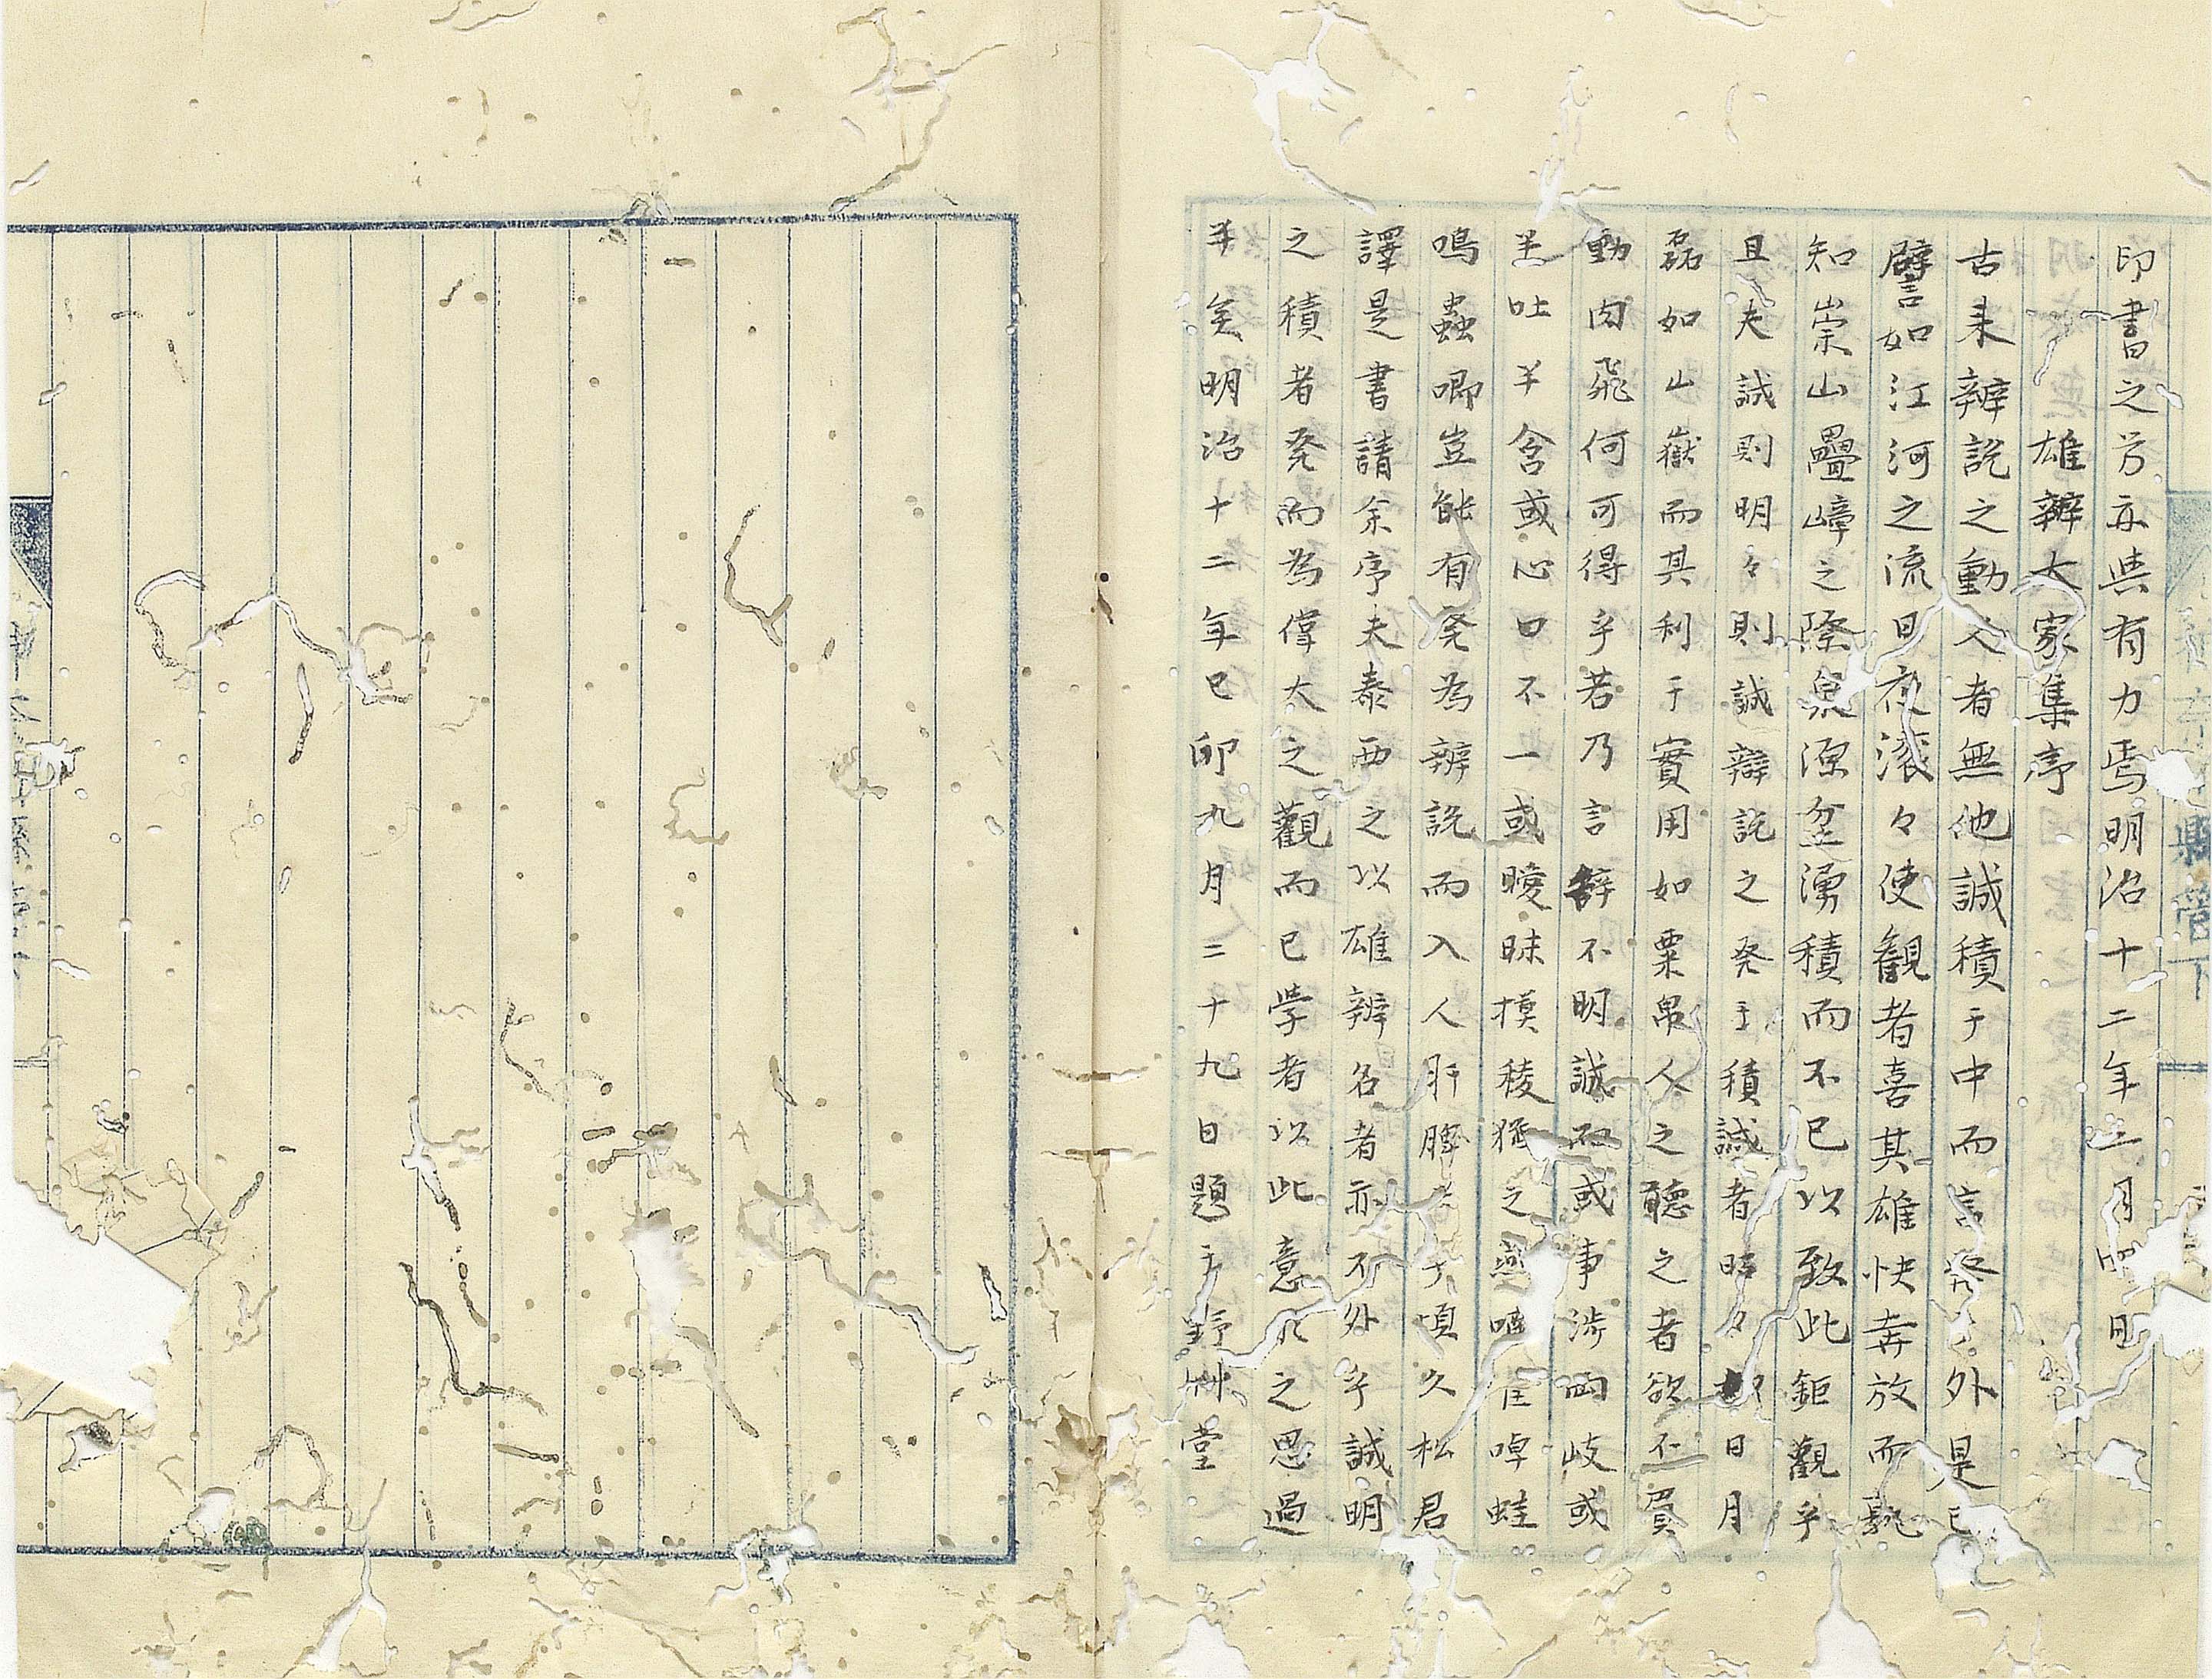 印書之功亦与有力焉明治十二年二月四日
雄辨大家集序
古来辨説之動人者無他誠積于中而言発外是已
譬如江河之流日夜滚々使観者喜其雄快奔放而孰
知崇山畳嶂之際泉源坌湧積而不已以致此鉅觀乎
且夫誠則明々則誠辯説之発于積誠者昭々如日月
磊如山嶽而其利于實用如粟帛人之聽之者欲不眉
動肉飛何可得乎若乃言辞不明誠不或事渉両岐或
半吐半含或心口不一或曖昧摸稜猶之燕喧雀啅蛙
鳴蟲唧豈能有発為辨説而入人肝脾者乎頃久松君
譯是書請余序夫泰西之以雄辨名者亦不外乎誠明
之積者発而為偉大之觀而已学者以此意求之思過
半矣明治十二年己卯九月二十九日題于野州堂